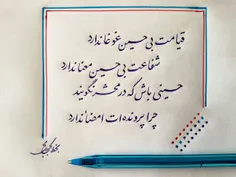 قیامت بی حسین غوغا ندارد
شفاعت بی حسین معنا ندارد
حسینی باش که در محشر نگویند
چرا پرونده ات امضا ندارد